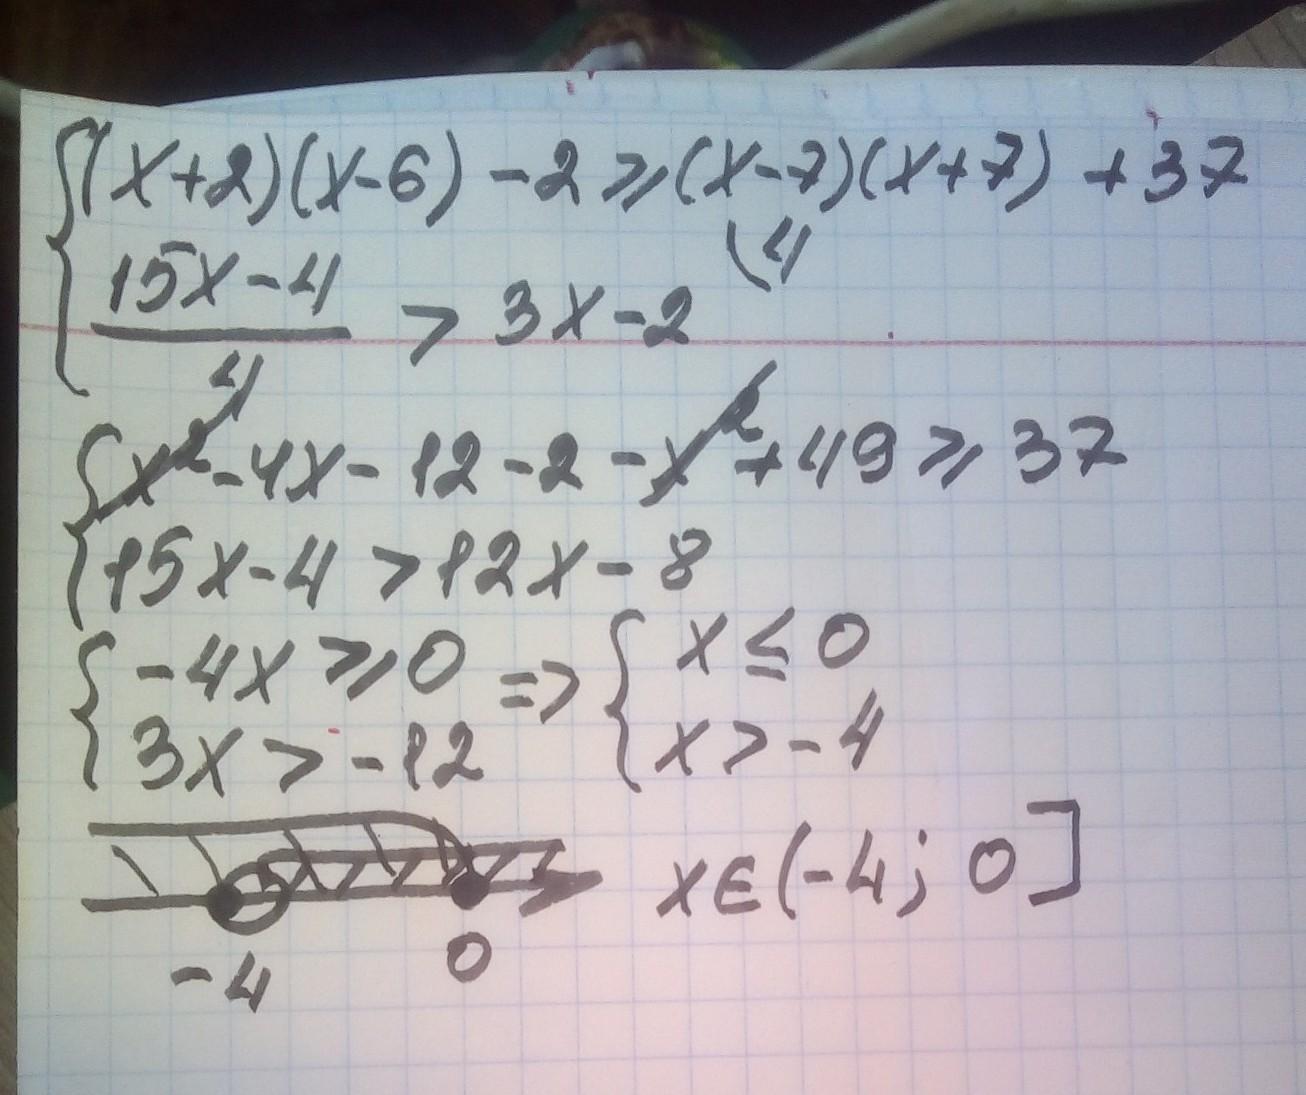 {(x+2)(x-6) -2 ≥ (x-7)(x+7) +37
{15x-4/4 > 3x-2 (4
{x²-4x-12-2-x²+49 ≥ 37
{15x-4 > 12x-8
{-4x ≥ 0 => {x ≤ 0
{3x > -12 {x > -4
x∈(-4; 0]
-4 0